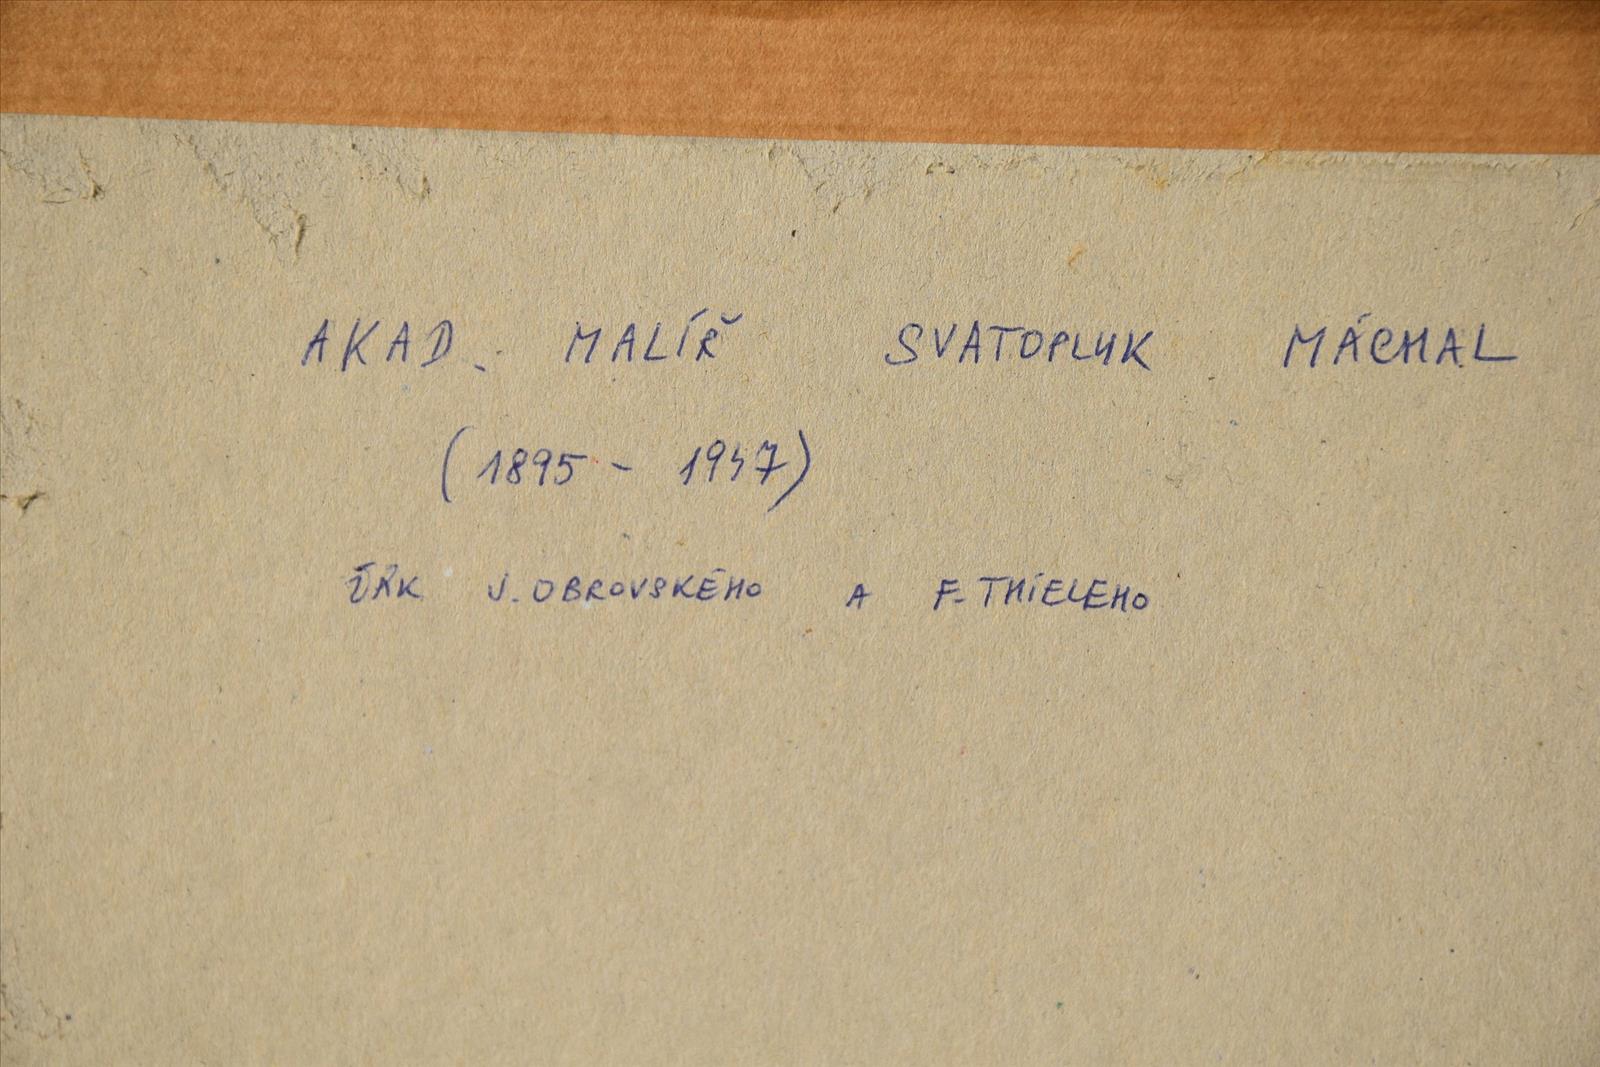 AKAD. MALÍŘ SVATOPLUK MÁCHAL
(1895 - 1947)
ŽÁK J. OBROVSKÉHO A F. THIELEHO